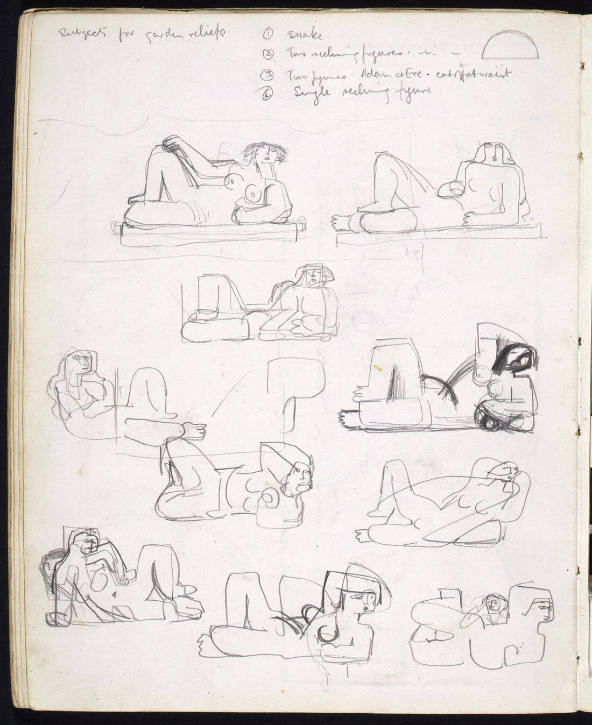 Subjects for garden reliefs
① Snake
② Two reclining figures. in
③ Two figures. Adam & Eve. cut off at waist
④ Single reclining figure.